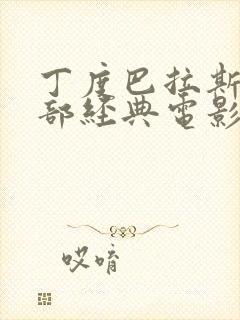 丁度巴拉斯
部經典電影
哎唷